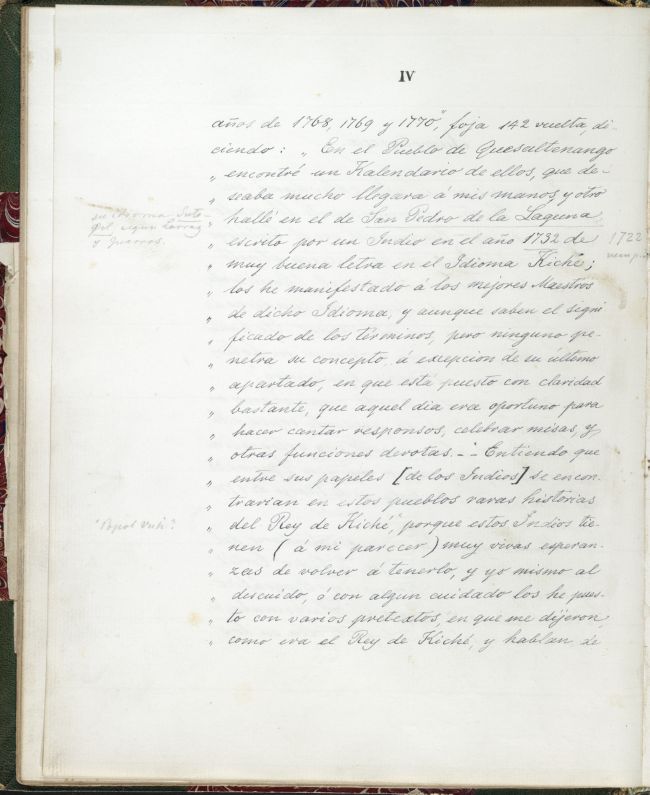 IV
años de 1768, 1769 y 1770", foja 142 vuelta, di-
ciendo: „ En el Pueblo de Quesaltenango
„ encontré un Kalendario de ellos, que de-
„ seaba mucho llegara á mis manos, y otro
„ hallé en el de San Pedro de la Laguna,
„ escrito por un Indio en el año 1732 de
„ muy buena letra en el Idioma Kiché;
„ los he manifestado á los mejores Maestros
„ de dicho Idioma, y aunque saben el signi
„ ficado de los términos, pero ninguno pe-
„ netra su concepto, á excepcion de su último
„ apartado, en que está puesto con claridad
„ bastante, que aquel dia era oportuno para
„ hacer cantar responsos, celebrar misas, y
„ otras funciones devotas. — Entiendo que
„ entre sus papeles [de los Indios] se encon-
„ trarian en estos pueblos varas historias
„ del Rey de Kiché, porque estos Indios tie-
„ nen (á mi parecer) muy vivas esperan-
„ zas de volver á tenerlo, y yo mismo al
„ descuido, ó con algun cuidado los he pues-
„ to con varios pretextos, en que me dijeron,
„ como era el Rey de Kiché, y hablan de
su idioma Sutu-
gil, segun Larraz
y Juarros.
1722
"Popol Vuh"?